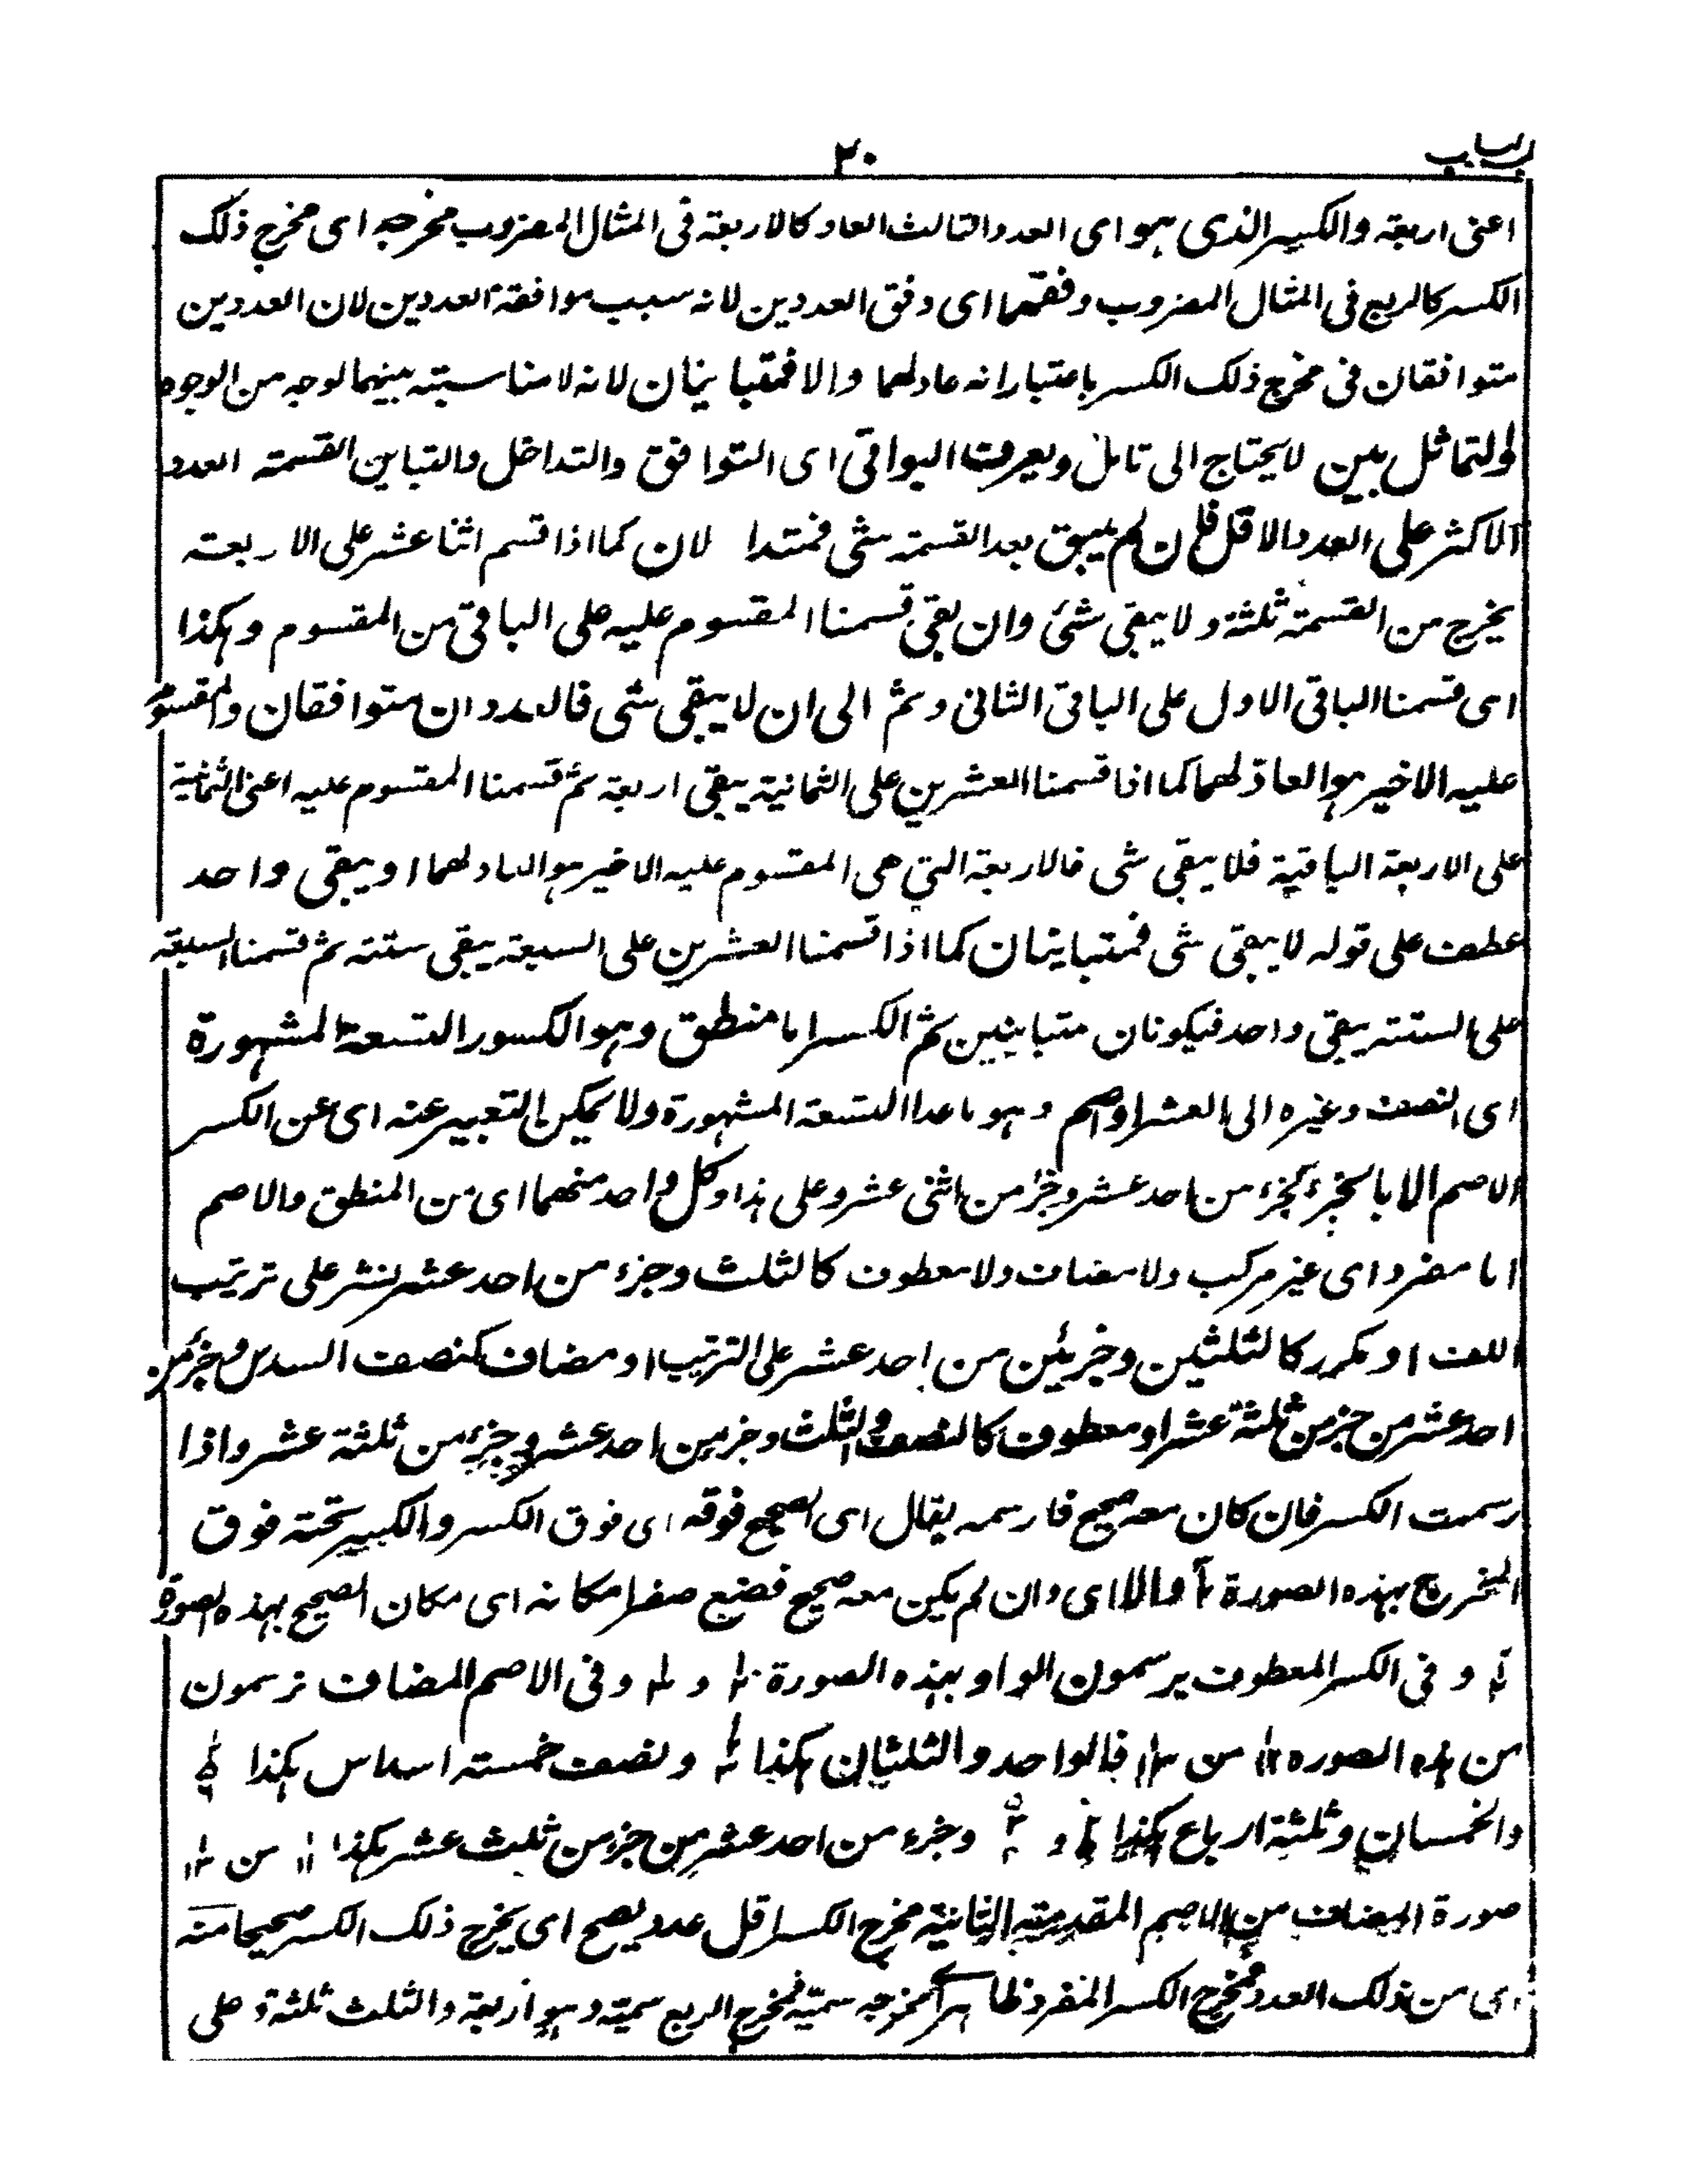 ٢٠
اعنى اربعة والكسر الذى هو اى العدد الثالث العاد كالاربعة فى المثال المضروب مخرجه اى مخرج ذلك
الكسر كالربع فى المثال المضروب وفقهما اى وفق العددين لانه سبب موافقة العددين لان العددين
متوافقان فى مخرج ذلك الكسر باعتبار انه عاد لهما والا فمتباينان لانه لا مناسبته بينهما لوجه من الوجوه
والتماثل بين لا يحتاج الى تامل ويعرف البواقى اى التوافق والتداخل والتباين القسمته العدد
الاكثر على العدد الاقل فان لم يبق بعد القسمته شى فمتدا لان كما اذا قسم اثنا عشر على الاربعته
يخرج من القسمته ثلثة ولا يبقى شئ وان بقى قسمنا المقسوم عليه على الباقى من المقسوم وهكذا
اى قسمنا الباقى الاول على الباقى الثانى وثم الى ان لا يبقى شى فالعددان متوافقان والمقسوم
عليه الاخير هو العاد لهما كما اذا قسمنا العشرين على الثمانية يبقى اربعة ثم قسمنا المقسوم عليه اعنى الثمانية
على الاربعة الباقية فلا يبقى شى فالاربعة التى هى المقسوم عليه الاخير هو العاد لهما او يبقى واحد
عطف على قوله لا يبقى شى فمتباينان كما اذا قسمنا العشرين على السبعة يبقى ستته ثم قسمنا السبعة
على الستته يبقى واحد فيكونان متباينين ثم الكسر اما منطق وهو الكسور التسعة المشهورة
اى النصف وغيره الى العشر او اصم وهو ما عدا التسعة المشهورة ولا يمكن التعبير عنه اى عن الكسر
الاصم الا بالجزء كجزء من احد عشر وجزء من اثنى عشر وعلى هذا وكل واحد منهما اى من المنطق والاصم
اما مفرد اى غير مركب ولا مضاف ولا معطوف كالثلث وجزء من احد عشر نشر على ترتيب
اللف او مكرر كالثلثين وجزئين من احد عشر على الترتيب او مضاف كنصف السدس وجزء من
احد عشر من جزء من ثلثة عشر او معطوف كالنصف والثلث وجزء من احد عشر وجزء من ثلثة عشر واذا
رسمت الكسر فان كان معه صحيح فارسمه يقال اى الصحيح فوقه اى فوق الكسر والكسر تحته فوق
المخرج بهذه الصورة والا اى وان لم يكن معه صحيح فضع صفرا مكانه اى مكان الصحيح بهذه الصورة
و فى الكسر المعطوف يرسمون الواو بهذه الصورة و وفى الاصم المضاف ترسمون
من هذه الصوره من فالواحد والثلثان هكذا ونصف خمسته اسداس هكذا
والخمسان وثلثة ارباع هكذا و وجزء من احد عشر من جزء من ثلث عشر هكذا من
صورة المضاف من الاصم المقدمته الثانية مخرج الكسر اقل عدد يصح اى يخرج ذلك الكسر صحيحا منه
اى من ذلك العدد فمخرج الكسر المفرد ظاهر سميّه فمخرج الربع سميّه وهو اربعة والثلث ثلثة وعلى